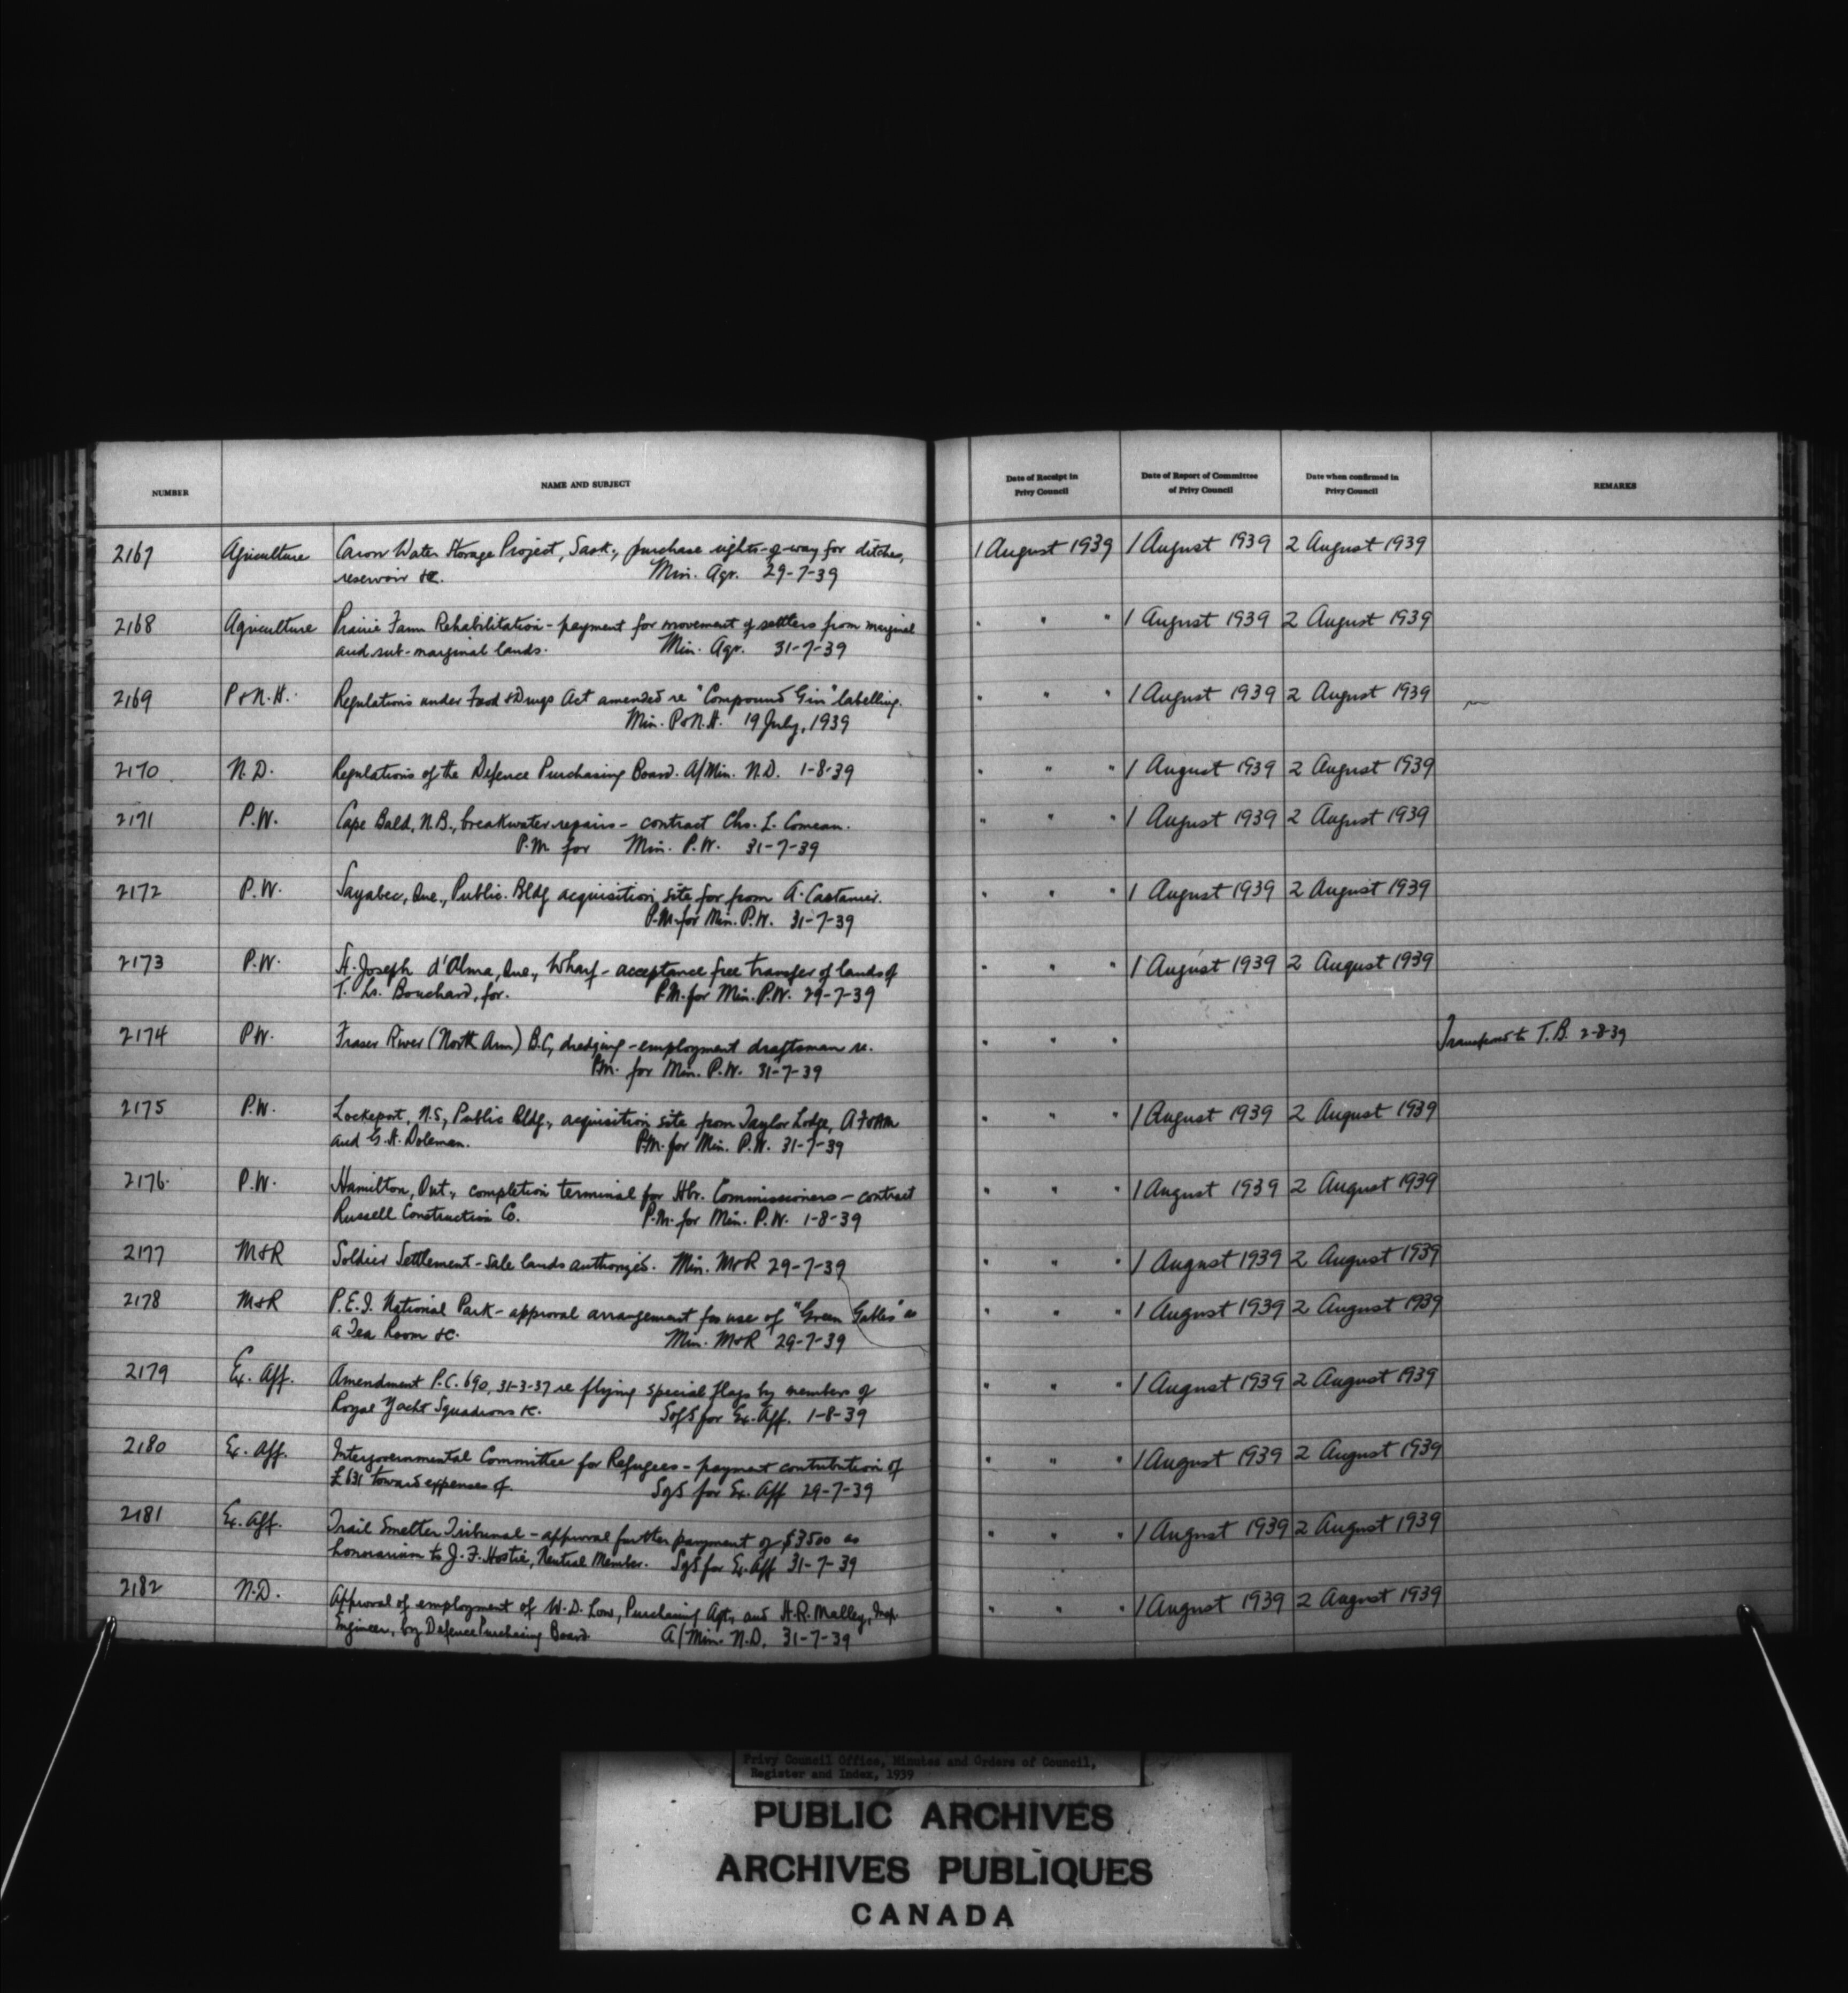 NUMBER NAME AND SUBJECT Date of Receipt in Privy Council Date of Report of Committee of Privy Council Date when confirmed in Privy Council REMARKS
2167 Agriculture Caron Water Storage Project, Sask., purchase rights-of-way for ditches, 1 August 1939 1 August 1939 2 August 1939
reservoir &c. Min. Agr. 29-7-39
2168 Agriculture Prairie Farm Rehabilitation - payment for movement of settlers from marginal " " " 1 August 1939 2 August 1939
and sub-marginal lands. Min. Agr. 31-7-39
2169 P&N.H. Regulations under Food & Drugs Act amended re "Compound Gin" labelling. " " " 1 August 1939 2 August 1939
Min. P&N.H. 19 July, 1939
2170 N.D. Regulations of the Defence Purchasing Board. A/Min. N.D. 1-8-39 " " " 1 August 1939 2 August 1939
2171 P.W. Cape Bald, N.B., breakwater repairs - contract Chs. L. Comeau. " " " 1 August 1939 2 August 1939
P.M. for Min. P.W. 31-7-39
2172 P.W. Sayabec, Que., Public Bldg acquisition site for from A. Castanier. " " " 1 August 1939 2 August 1939
P.M. for Min. P.W. 31-7-39
2173 P.W. St. Joseph d'Alma, Que., Wharf - acceptance free transfer of lands of " " " 1 August 1939 2 August 1939
T. Ls. Bouchard, for. P.M. for Min. P.W. 29-7-39
2174 P.W. Fraser River (North Arm) B.C, dredging - employment draftsman re. " " " T.B. 2-8-39
P.M. for Min. P.W. 31-7-39
2175 P.W. Lockeport, N.S., Public Bldg., acquisition site from Taylor Lodge, AF&AM " " " 1 August 1939 2 August 1939
and G.H. Doleman. P.M. for Min. P.W. 31-7-39
2176 P.W. Hamilton, Ont., completion terminal for Hbr. Commissioners - contract " " " 1 August 1939 2 August 1939
Russell Construction Co. P.M. for Min. P.W. 1-8-39
2177 M&R Soldier Settlement - sale lands authorized. Min. M&R 29-7-39 " " " 1 August 1939 2 August 1939
2178 M&R P.E.I. National Park - approval arrangement for use of "Green Gables" as " " " 1 August 1939 2 August 1939
a Tea Room &c. Min. M&R 29-7-39
2179 Ex. Aff. Amendment P.C. 690, 31-3-37 re flying special flags by members of " " " 1 August 1939 2 August 1939
Royal Yacht Squadrons &c. SofS for Ex. Aff. 1-8-39
2180 Ex. Aff. Intergovernmental Committee for Refugees - payment contribution of " " " 1 August 1939 2 August 1939
£631 toward expenses of. SofS for Ex. Aff 29-7-39
2181 Ex. Aff. Trail Smelter Tribunal - approval further payment of $3500 as " " " 1 August 1939 2 August 1939
honorarium to J.F. Hostie, Neutral Member. SofS for Ex. Aff 31-7-39
2182 N.D. Approval of employment of W.D. Low, Purchasing Agt., and H.R. Malley, Insp. " " " 1 August 1939 2 August 1939
Engineer, by Defence Purchasing Board A/Min. N.D. 31-7-39
Privy Council Office, Minutes and Orders of Council,
Register and Index, 1939
PUBLIC ARCHIVES
ARCHIVES PUBLIQUES
CANADA